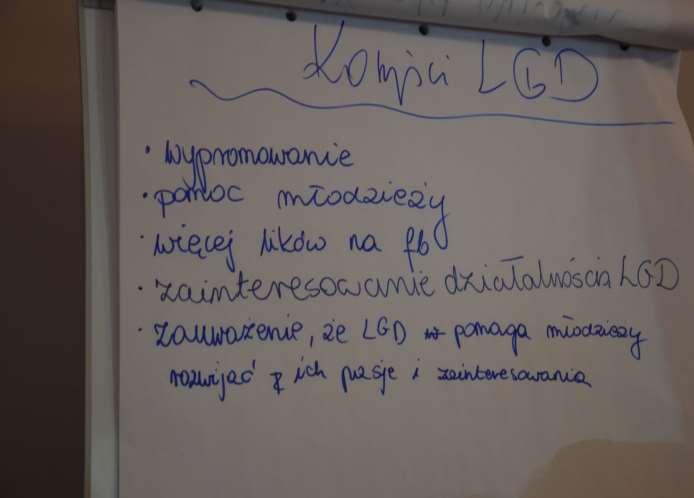 Korzyści LGD
· wypromowanie
· pomoc młodzieży
· więcej lików na fb
· zainteresowanie działalnością LGD
· zauważenie, że LGD pomaga młodzieży
rozwijać ich pasje i zainteresowania